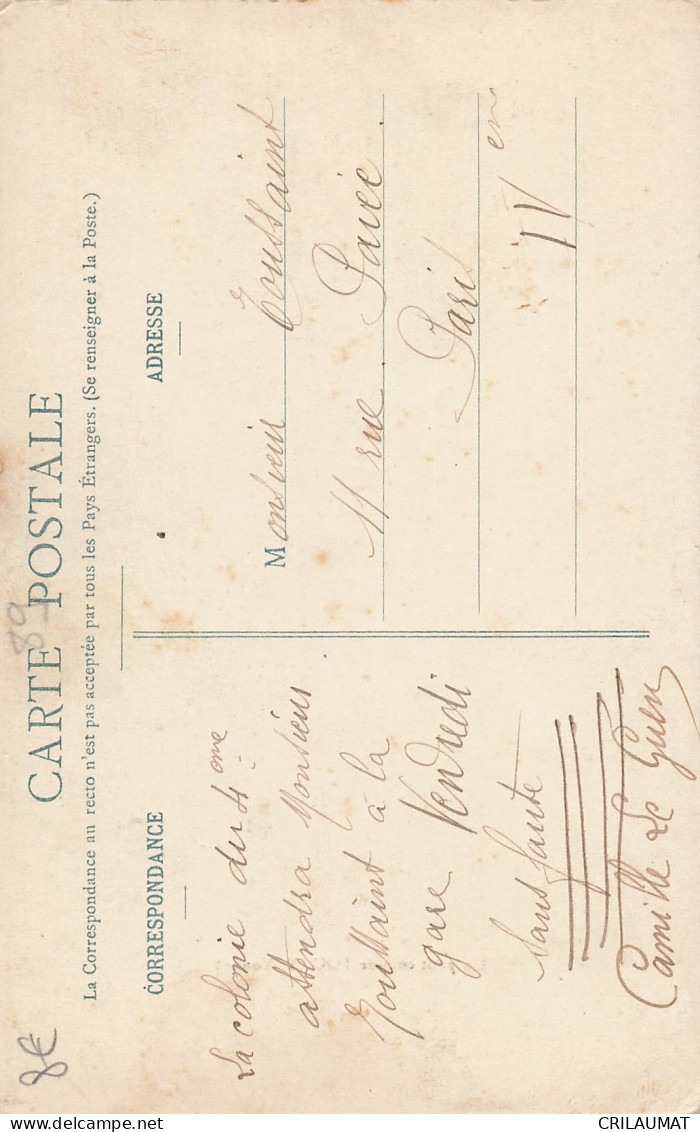 CARTE POSTALE
La Correspondance au recto n'est pas acceptée par tous les Pays Étrangers. (Se renseigner à la Poste.)
CORRESPONDANCE
La colonie du 4.ome
attendra Monsieur
Toussaint à la
gare Vendredi
sans faute
Camille Le Guen
ADRESSE
Monsieur Toussaint
11 rue Pavée
Paris
IV en
89
8€
CRILAUMAT